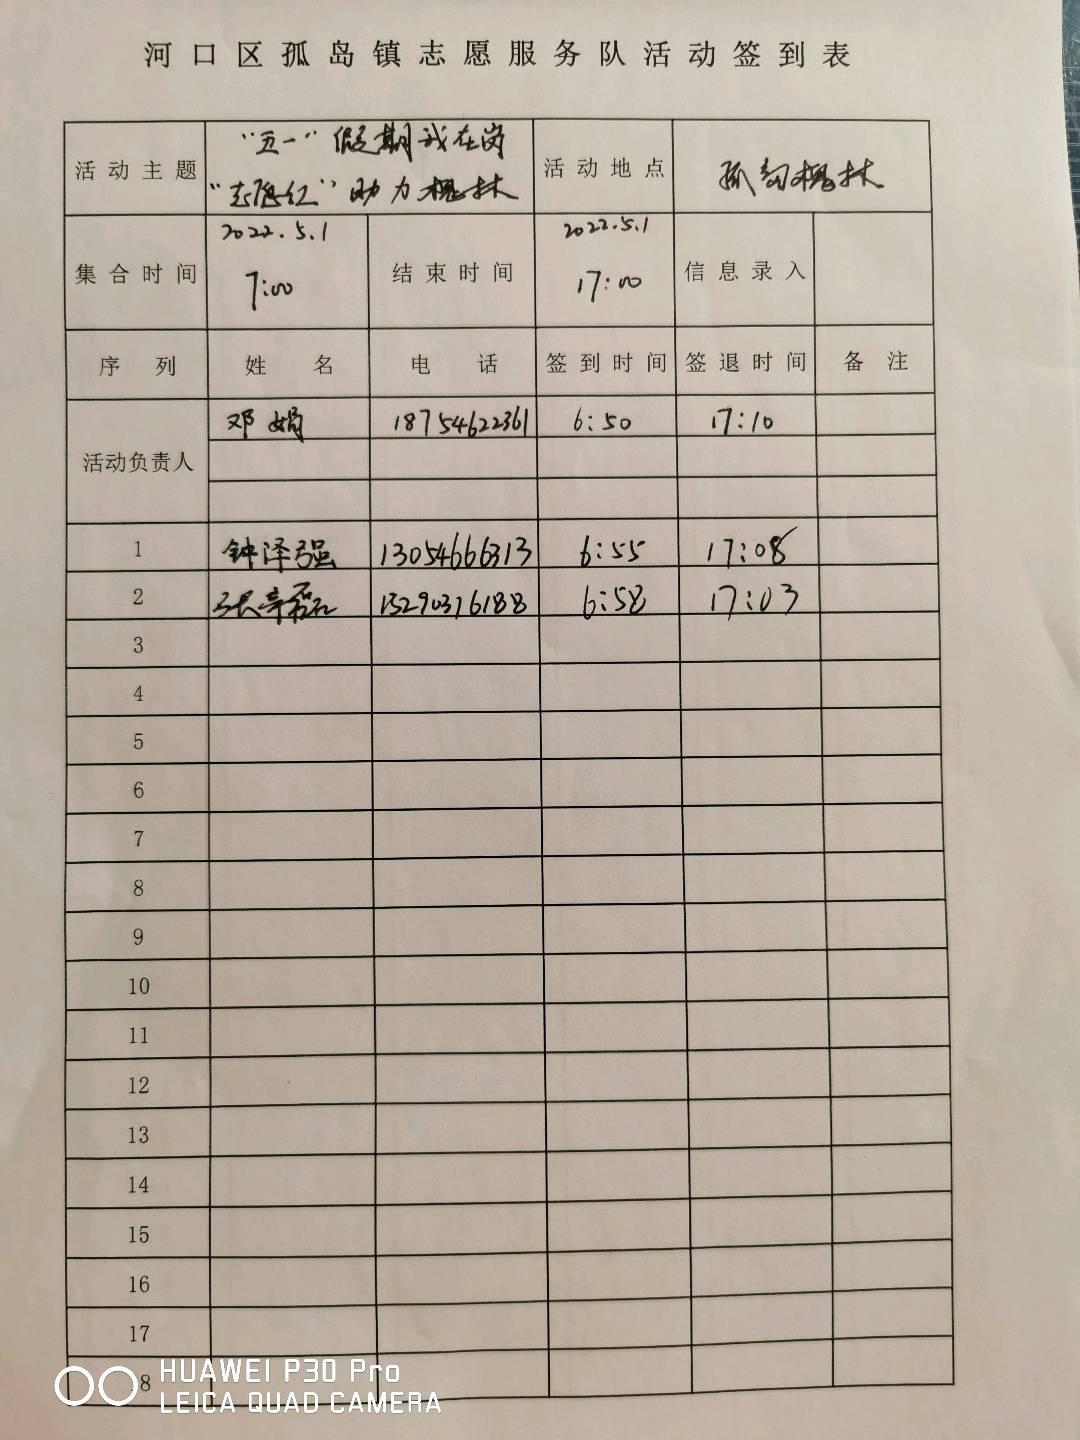 河口区孤岛镇志愿服务队活动签到表
活动主题 "五一"假期我在岗 活动地点 孤岛槐林
"志愿红"助力槐林
集合时间 2022.5.1 结束时间 2022.5.1 信息录入
7:00 17:00
序列 姓名 电话 签到时间 签退时间 备注
活动负责人 邓娟 18754622361 6:50 17:10
1 钟泽强 13054666313 6:55 17:08
2 张 磊 15290376188 6:58 17:03
3
4
5
6
7
8
9
10
11
12
13
14
15
16
17
8
HUAWEI P30 Pro
LEICA QUAD CAMERA